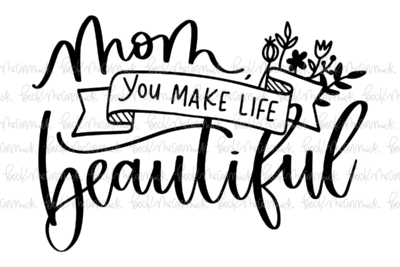 mom,
you MAKE LIFE
beautiful